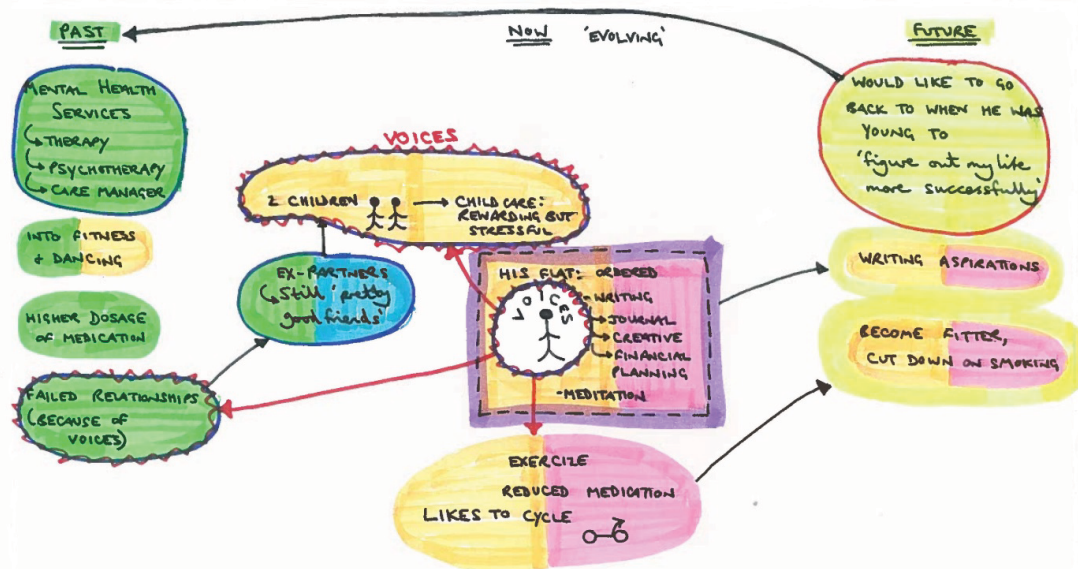 PAST
NOW 'EVOLVING'
FUTURE
MENTAL HEALTH
SERVICES
THERAPY
PSYCHOTHERAPY
CARE MANAGER
INTO FITNESS
& DANCING
HIGHER DOSAGE
OF MEDICATION
FAILED RELATIONSHIPS
(BECAUSE OF
VOICES)
VOICES
2 CHILDREN
CHILD CARE:
REWARDING BUT
STRESSFUL
EX-PARTNERS
Still 'pretty
good friends'
HIS FLAT: ORDERED
- WRITING
JOURNAL
CREATIVE
FINANCIAL
PLANNING
- MEDITATION
VOICES
EXERCIZE
REDUCED MEDICATION
LIKES TO CYCLE
WOULD LIKE TO GO
BACK TO WHEN HE WAS
YOUNG TO
'figure out my life
more successfully'
WRITING ASPIRATIONS
BECOME FITTER,
CUT DOWN ON SMOKING